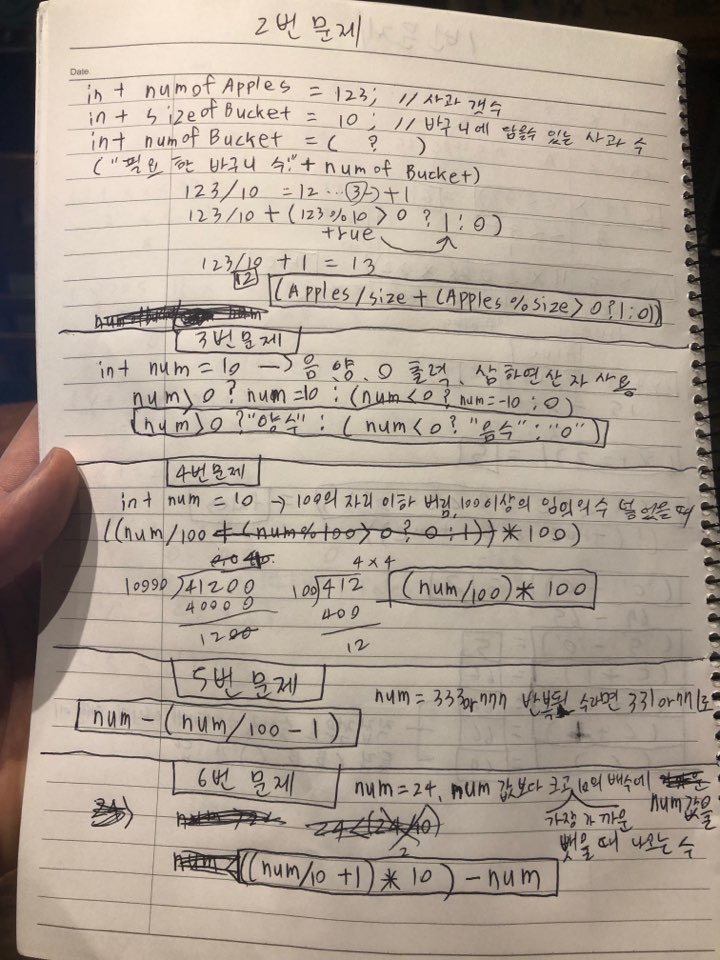 2번 문제
Date.
int numofApples = 123; // 사과 갯수
int sizeofBucket = 10; // 바구니에 담을수 있는 사과 수
int numofBucket = ( ? )
("필요한 바구니 수:"+ numofBucket)
123/10 = 12 ... ③→+1
123/10 + (123%10 > 0 ? 1 : 0)
true
123/10 + 1 = 13
12
(Apples/size + (Apples%size > 0 ? 1 : 0))
3번문제
int num = 10 --> 음, 양, 0 출력, 삼하연산자 사용
num > 0 ? num=10 : (num<0 ? num=-10 : 0)
num > 0 ? "양수" : ( num < 0 ? "음수" : "0")
4번문제
int num = 10 → 100의 자리 이하 버림, 100이상의 임의의 수 넣었을 때
((num/100 + (num%100 > 0 ? 0 : 1)) * 100)
4x4
41200
100 412
40000
400
1200
12
(num/100) * 100
5번 문제
num = 333아 777 반복된 수라면 331아 771로
num - (num/100 - 1)
6번 문제
num = 24, num 값보다 크고 10의 배수에
가장 가까운
num값을
뺏을 때 나오는 수
24<(24/10)
2
((num/10 + 1) * 10) - num